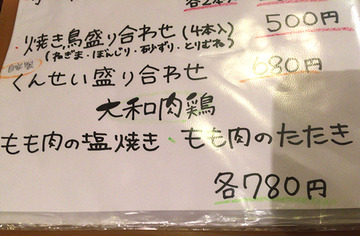 焼き鳥盛り合わせ(4本入) 500円
(ねぎま・ぼんじり・砂ずり・とりむね)
くんせい盛り合わせ 680円
大和肉鶏
もも肉の塩焼き・もも肉のたたき
各780円